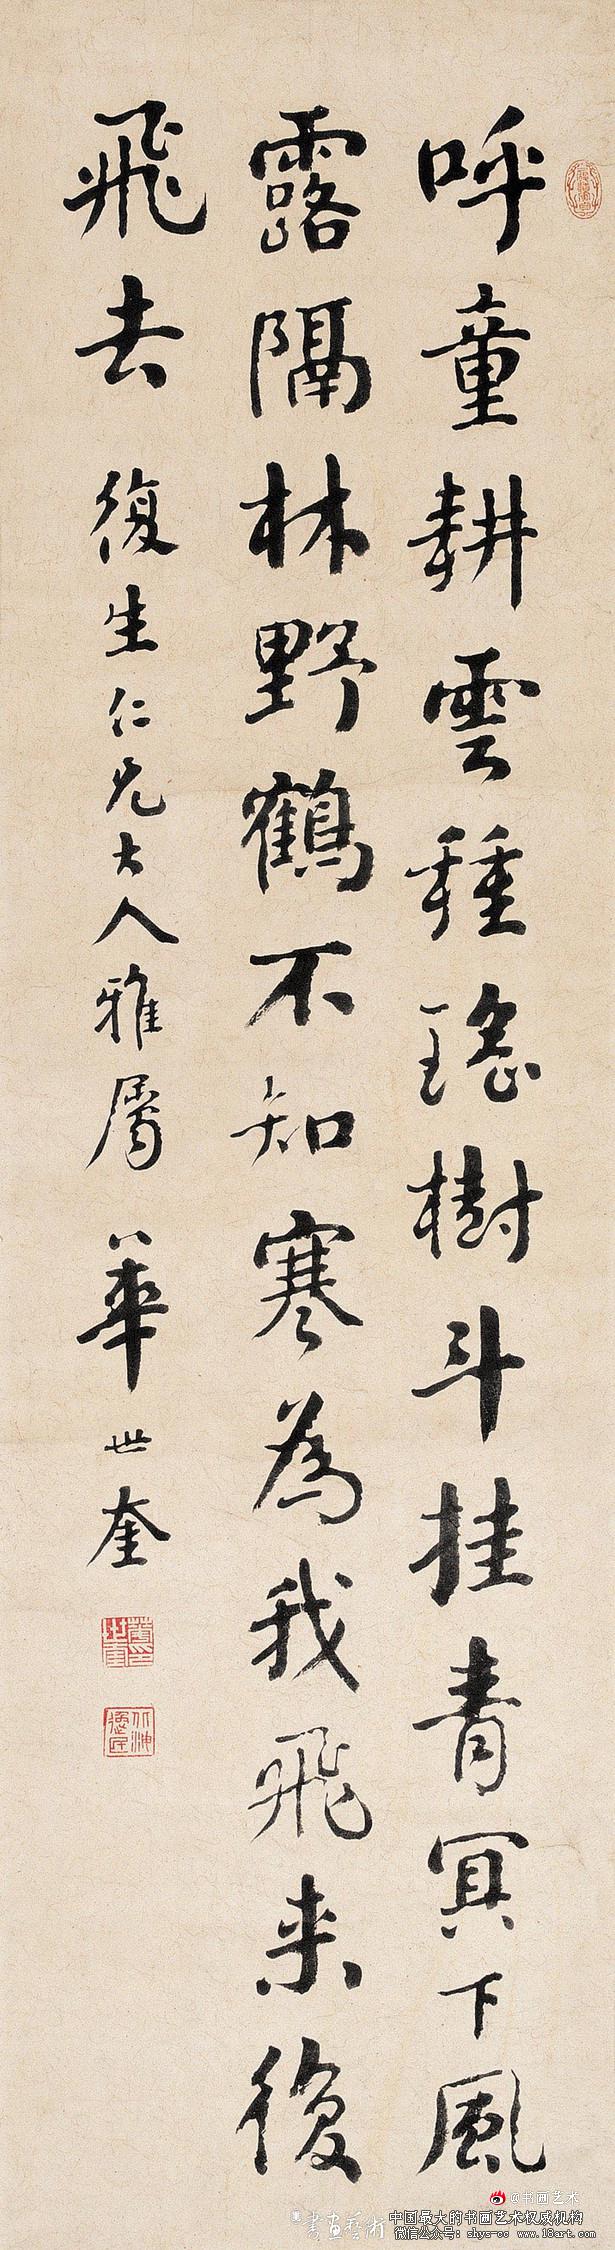 呼童耕雲種瑤樹斗挂青冥下風
露隔林野鶴不知寒為我飛来復
飛去
復生仁兄大人雅屬
華世奎
@书画艺术
書画藝術
中国最大的书画艺术权威机构
微信公众号：shys-cc www.18art.com